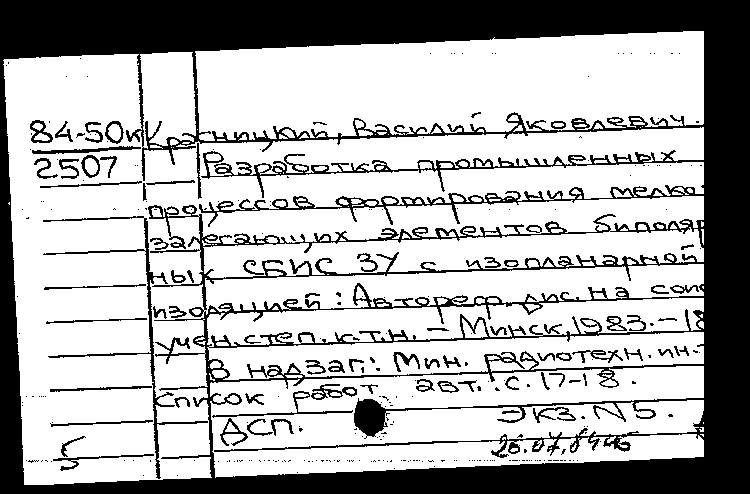 84-50к Красницкий, Василий Яковлевич.
2507 Разработка промышленных
процессов формирования мелко-
залегающих элементов биполяр
ных СБИС ЗУ с изопланарной
изоляцией: Автореф. дис. на соис
учен. степ. к.т.н. – Минск, 1983. – 18
В надзаг.: Мин. радиотехн. ин-т
Список работ авт.: с. 17-18.
ДСП. Экз. N 5.
5 26.07.84